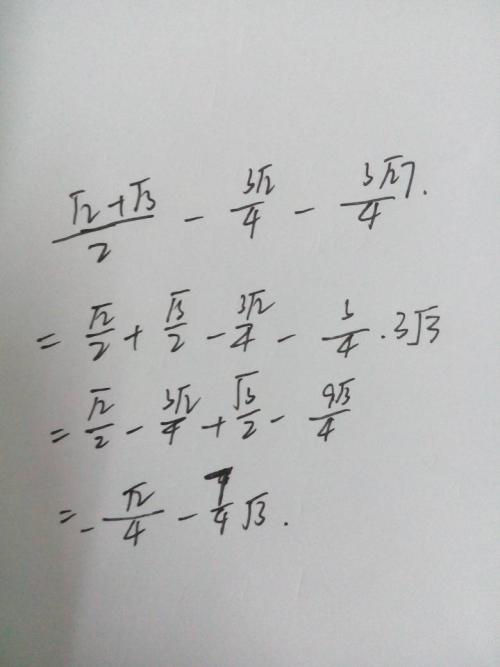 (√2+√3)/2 - 3√2/4 - 3√27/4.
= √2/2 + √3/2 - 3√2/4 - 3/4 · 3√3
= √2/2 - 3√2/4 + √3/2 - 9√3/4
= -√2/4 - 7/4 √3.